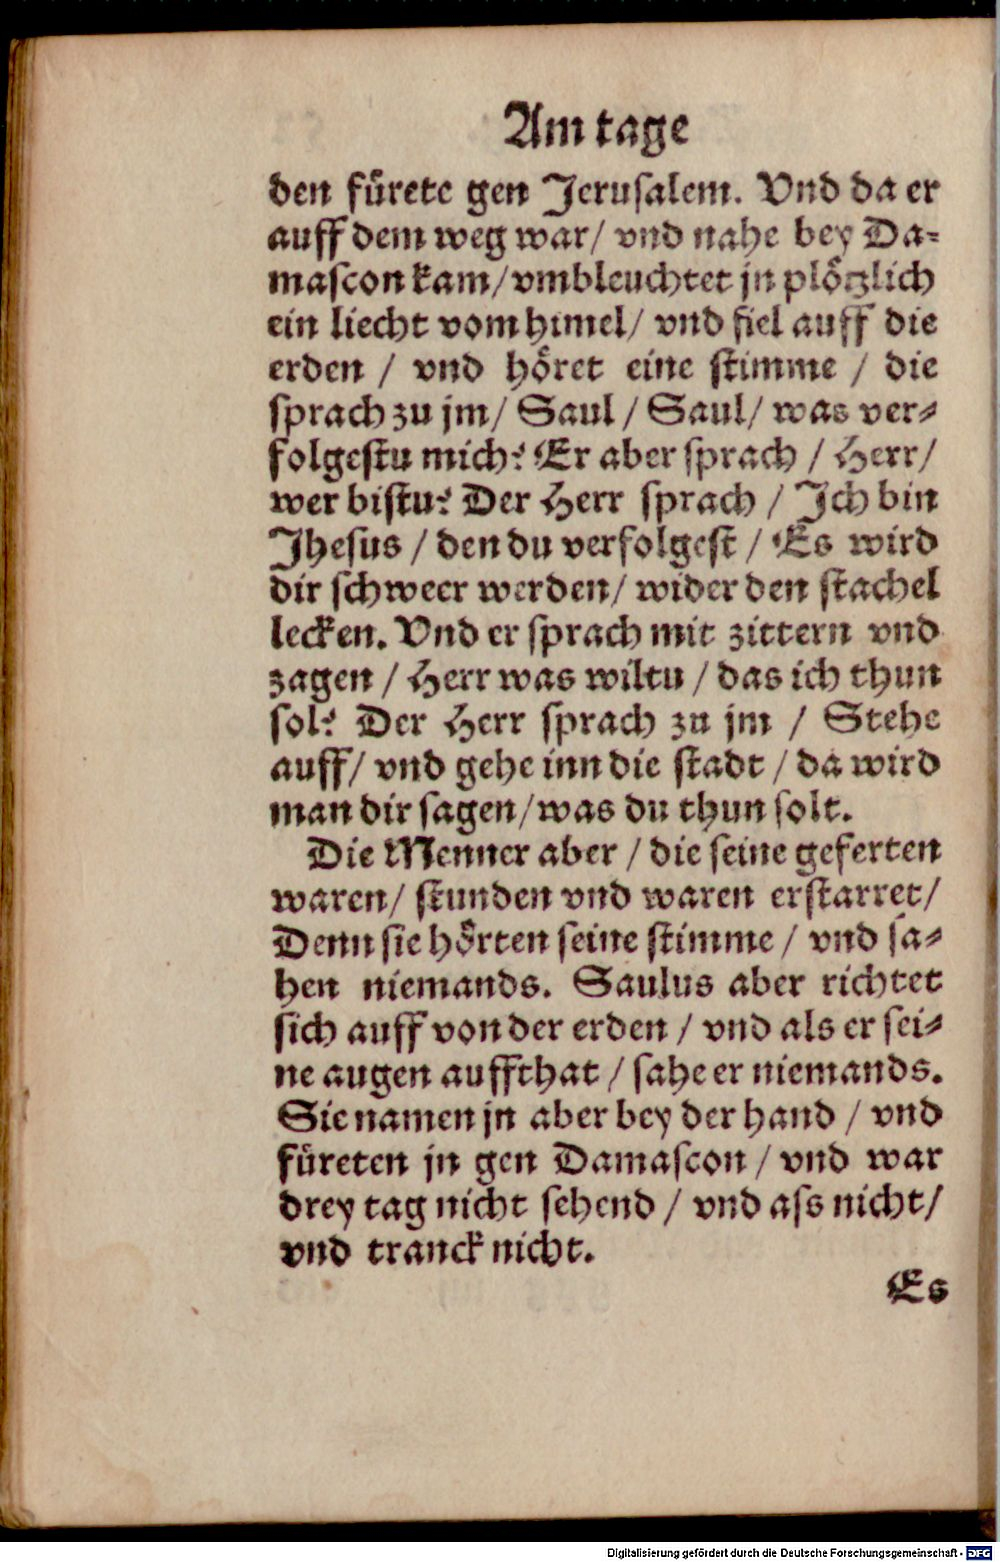 Am tage
den fürete gen Jerusalem. Vnd da er
auff dem weg war/ vnd nahe bey Da-
mascon kam/ vmbleuchtet jn plötzlich
ein liecht vom himel/ vnd fiel auff die
erden / vnd höret eine stimme / die
sprach zu jm/ Saul / Saul/ was ver-
folgestu mich? Er aber sprach / Herr/
wer bistu? Der Herr sprach / Ich bin
Jhesus / den du verfolgest / Es wird
dir schweer werden/ wider den stachel
lecken. Vnd er sprach mit zittern vnd
zagen / Herr was wiltu / das ich thun
sol? Der Herr sprach zu jm / Stehe
auff/ vnd gehe inn die stadt / da wird
man dir sagen/ was du thun solt.
Die Menner aber / die seine geferten
waren/ stunden vnd waren erstarret/
Denn sie hörten seine stimme / vnd sa-
hen niemands. Saulus aber richtet
sich auff von der erden / vnd als er sei-
ne augen auffthat / sahe er niemands.
Sie namen jn aber bey der hand / vnd
füreten jn gen Damascon / vnd war
drey tag nicht sehend / vnd ass nicht/
vnd tranck nicht.
Es
Digitalisierung gefördert durch die Deutsche Forschungsgemeinschaft - DFG